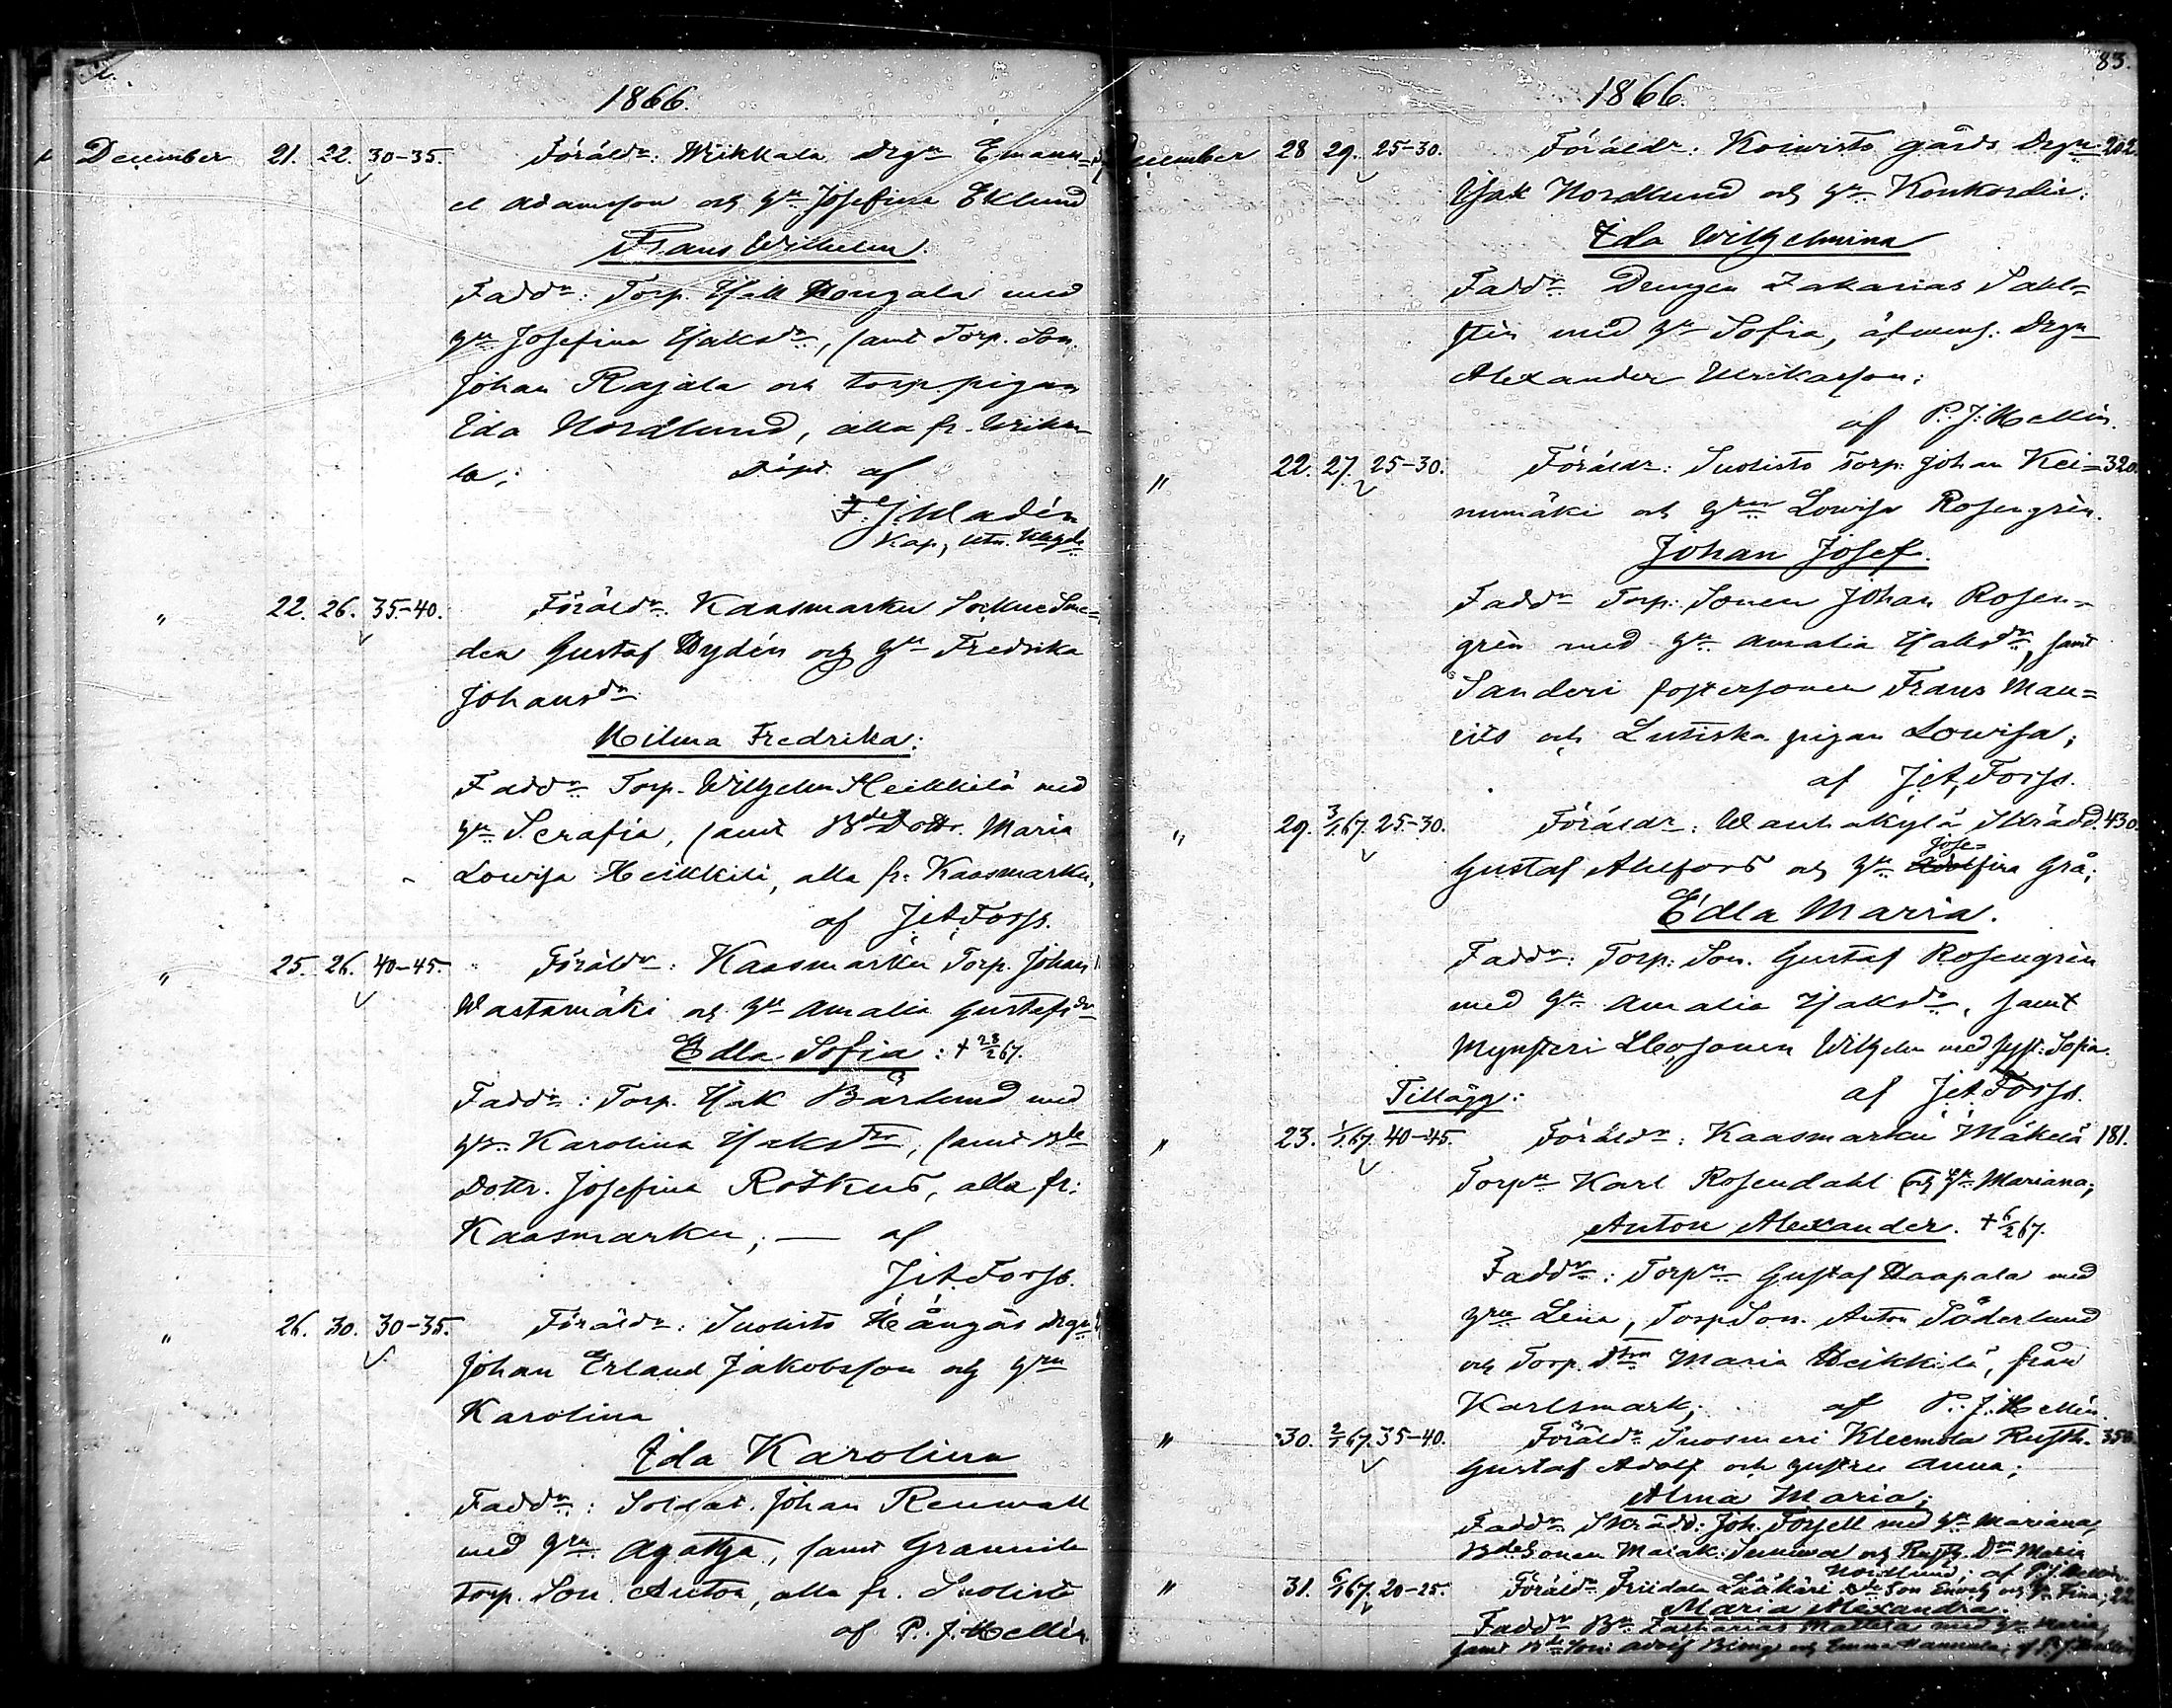 1866.
December 21. 22. 30-35. Föräldr: Wrikkala drgn Emanu=
el Adamsson och hu Josefina Eklund
Frans Wilhelm.
Faddr: Torp. Isak Hongala med
hu Josefina Isaksdr, samt Torp. Son.
Johan Rajala och torp. pigan
Ida Nordlund, alla fr. Wrikka-
la; döpt af
F. J. Uladén
Kap,
" 22. 26. 35-40. Föräldr. Kaasmarku
den Gustaf Hydén och hu Fredrika
Johansdr
Hilma Fredrika:
Faddr Torp. Wilhelm Heikkilä med
hu Serafia, samt Bde Dottr. Maria
Lowisa Heikkilä, alla fr. Kaasmarku,
af J. A. Forss.
" 25. 26. 40-45. Föräldr: Kaasmarku Torp. Johan
Wastamäki och hu Amalia Gustafsdr
Edla Sofia: + 28/2 67.
Faddr: Torp. Isak Bärlund med
hu Karolina Isaksdr, samt Bde
Dottr. Josefina Rotkus, alla fr:
Kaasmarku; — af
J. A. Forss.
" 26. 30. 30-35. Föräldr: Suolisto Hångäs drgn
Johan Erland Jakobsson och hru
Karolina
Ida Karolina
Faddr: Soldat. Johan Renwall
med hru Agatha, samt Grannila
Torp. Son Anton, alla fr. Suolisto
af P. J. Hellén.
83.
1866.
December 28 29. 25-30. Föräldr: Koiwisto gårds Drgn 202.
Isak Nordlund och hu Konkordia:
Ida Wilhelmina
Faddr Drengen Zakarias Sahl=
stén med hu Sofia, äfvens. Drgn
Alexander Ulrikasson;
af P. J. Hellén.
" 22. 27. 25-30. Föräldr: Suolisto Torp: Johan Kei= 320.
numäki och hru Lowisa Rosengrén.
Johan Josef.
Faddr Torp: Sonen Johan Rosen-
grén med hu Amalia Isaksdr, samt
Sanderi fostersonen Frans Mau=
rits och Lutiska pigan Lowisa;
af J. A. Forss.
" 29. 3/1 67. 25-30. Föräldr: Wanhakylä Skrädd. 430.
Jose=
Gustaf Ahlfors och hu Adolfina Grå;
Edla Maria.
Faddr: Torp: Son. Gustaf Rosengrén
med hu Amalia Isaksdr, samt
Mynsteri Sonen Wilhelm med Syst: Sofia.
af J. A. Forss.
Tillägg:
" 23. 1/1 67. 40-45. Föräldr: Kaasmarku Mäkelä 181.
Torpn Karl Rosendahl och hu Mariana;
Anton Alexander. + 6/2 67.
Faddr: Torpn Gustaf Haapala med
hru Lena, Torp Son. Anton Söderlund
och Torp. Dtrn Maria Heikkilä, från
Karlsmark; af P. J. Hellén.
" 30. 2/1 67. 35-40. Föräldr Suosmeri Kleemola Rusth. 350.
Gustaf Adolf och hustru Anna;
Alma Maria;
Faddr Skrädd: Joh. Forsell med hu Mariana,
Bde Sonen Maiak: och Rusth. Drn Maria
Nordlund; af P. J. Hellén.
" 31. 6/1 67. 20-25. Föräldr Friidala Lääkäri Bde Son Enock och hu Fina; 22
Maria Alexandra.
Faddr Bn. Zacharias Mattila med hu Maria,
samt Bde Son: Adolf och Emma Hannula; af P. J. Hellén